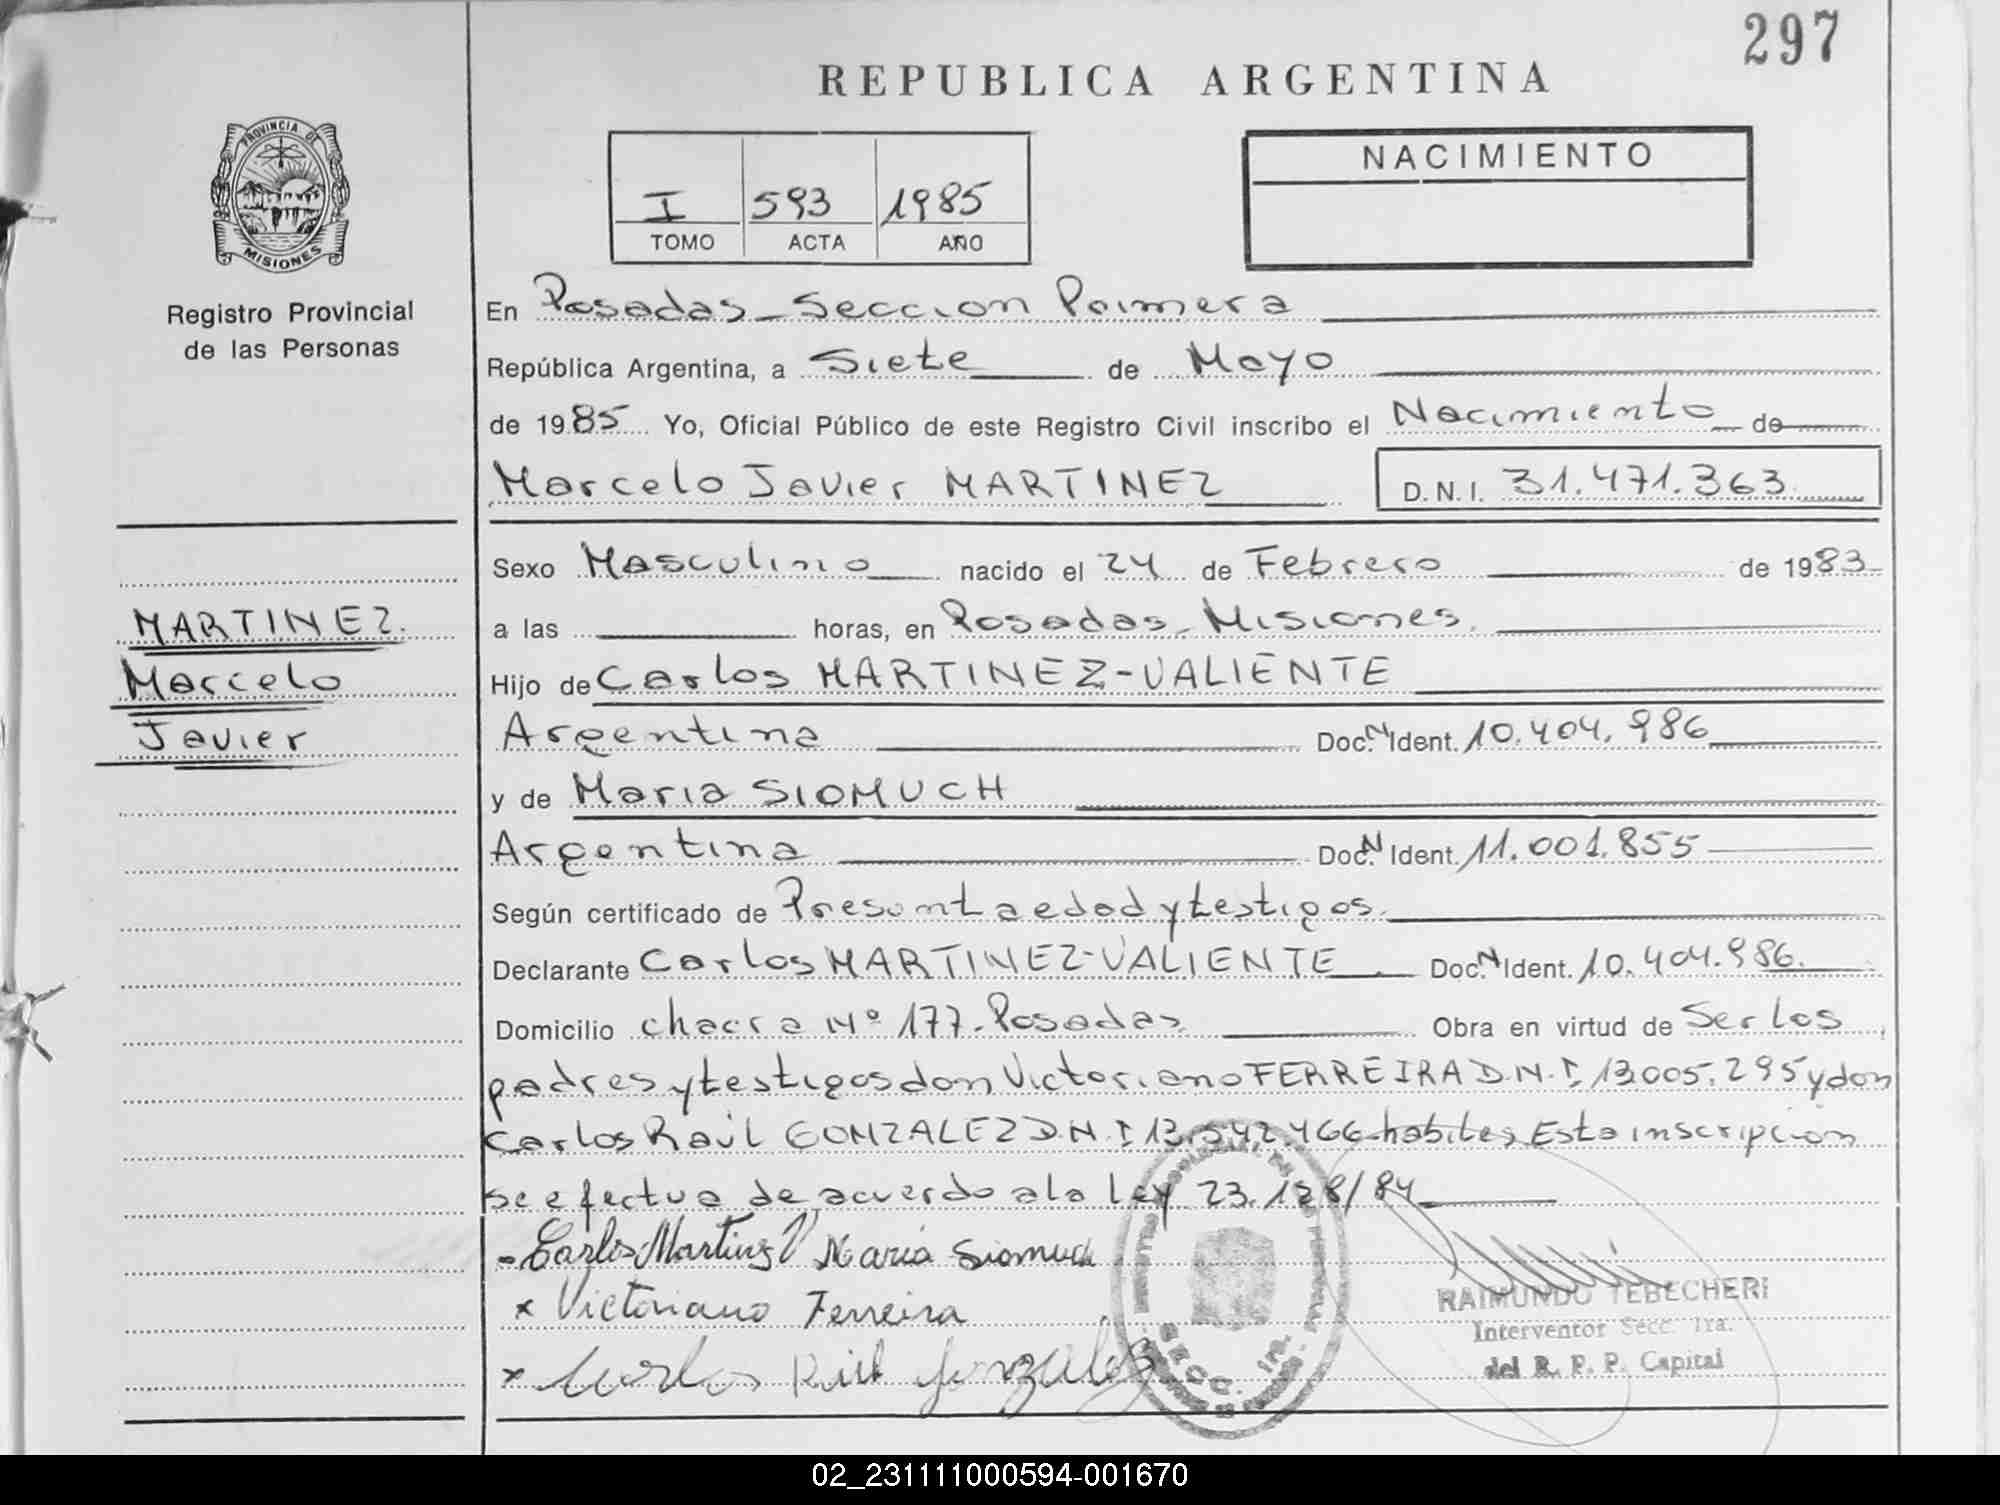 297
REPUBLICA ARGENTINA
PROVINCIA DE
MISIONES
Registro Provincial
de las Personas
I 593 1985
TOMO ACTA AÑO
NACIMIENTO
En Posadas - Seccion Primera
República Argentina, a Siete de Mayo
de 1985 Yo, Oficial Público de este Registro Civil inscribo el Nacimiento de
Marcelo Javier MARTINEZ D.N.I. 31.471.363
MARTINEZ.
Marcelo
Javier
Sexo Masculino nacido el 24 de Febrero de 1983
a las horas, en Posadas - Misiones.
Hijo de Carlos MARTINEZ-VALIENTE
Argentina Doc. N Ident. 10.404.986
y de Maria SIOMUCH
Argentina Doc. N Ident. 11.001.855
Según certificado de Presunta edad y testigos.
Declarante Carlos MARTINEZ-VALIENTE Doc. N Ident. 10.404.986.
Domicilio chacra Nº 177 - Posadas Obra en virtud de Ser los
padres y testigos don Victoriano FERREIRA D.N.I. 13.005.295 y don
Carlos Raúl GONZALEZ D.N.I 12.542.466 - habiles, Esta inscripcion
se efectua de acuerdo a la Ley 23.128/84
- Carlos Martinez V Maria Siomuch
x Victoriano Ferreira
x Carlos Raul Gonzalez
SECC. 1RA.
RAIMUNDO TEBECHERI
Interventor Secc. 1ra.
del R. P. P. Capital
02_231111000594-001670